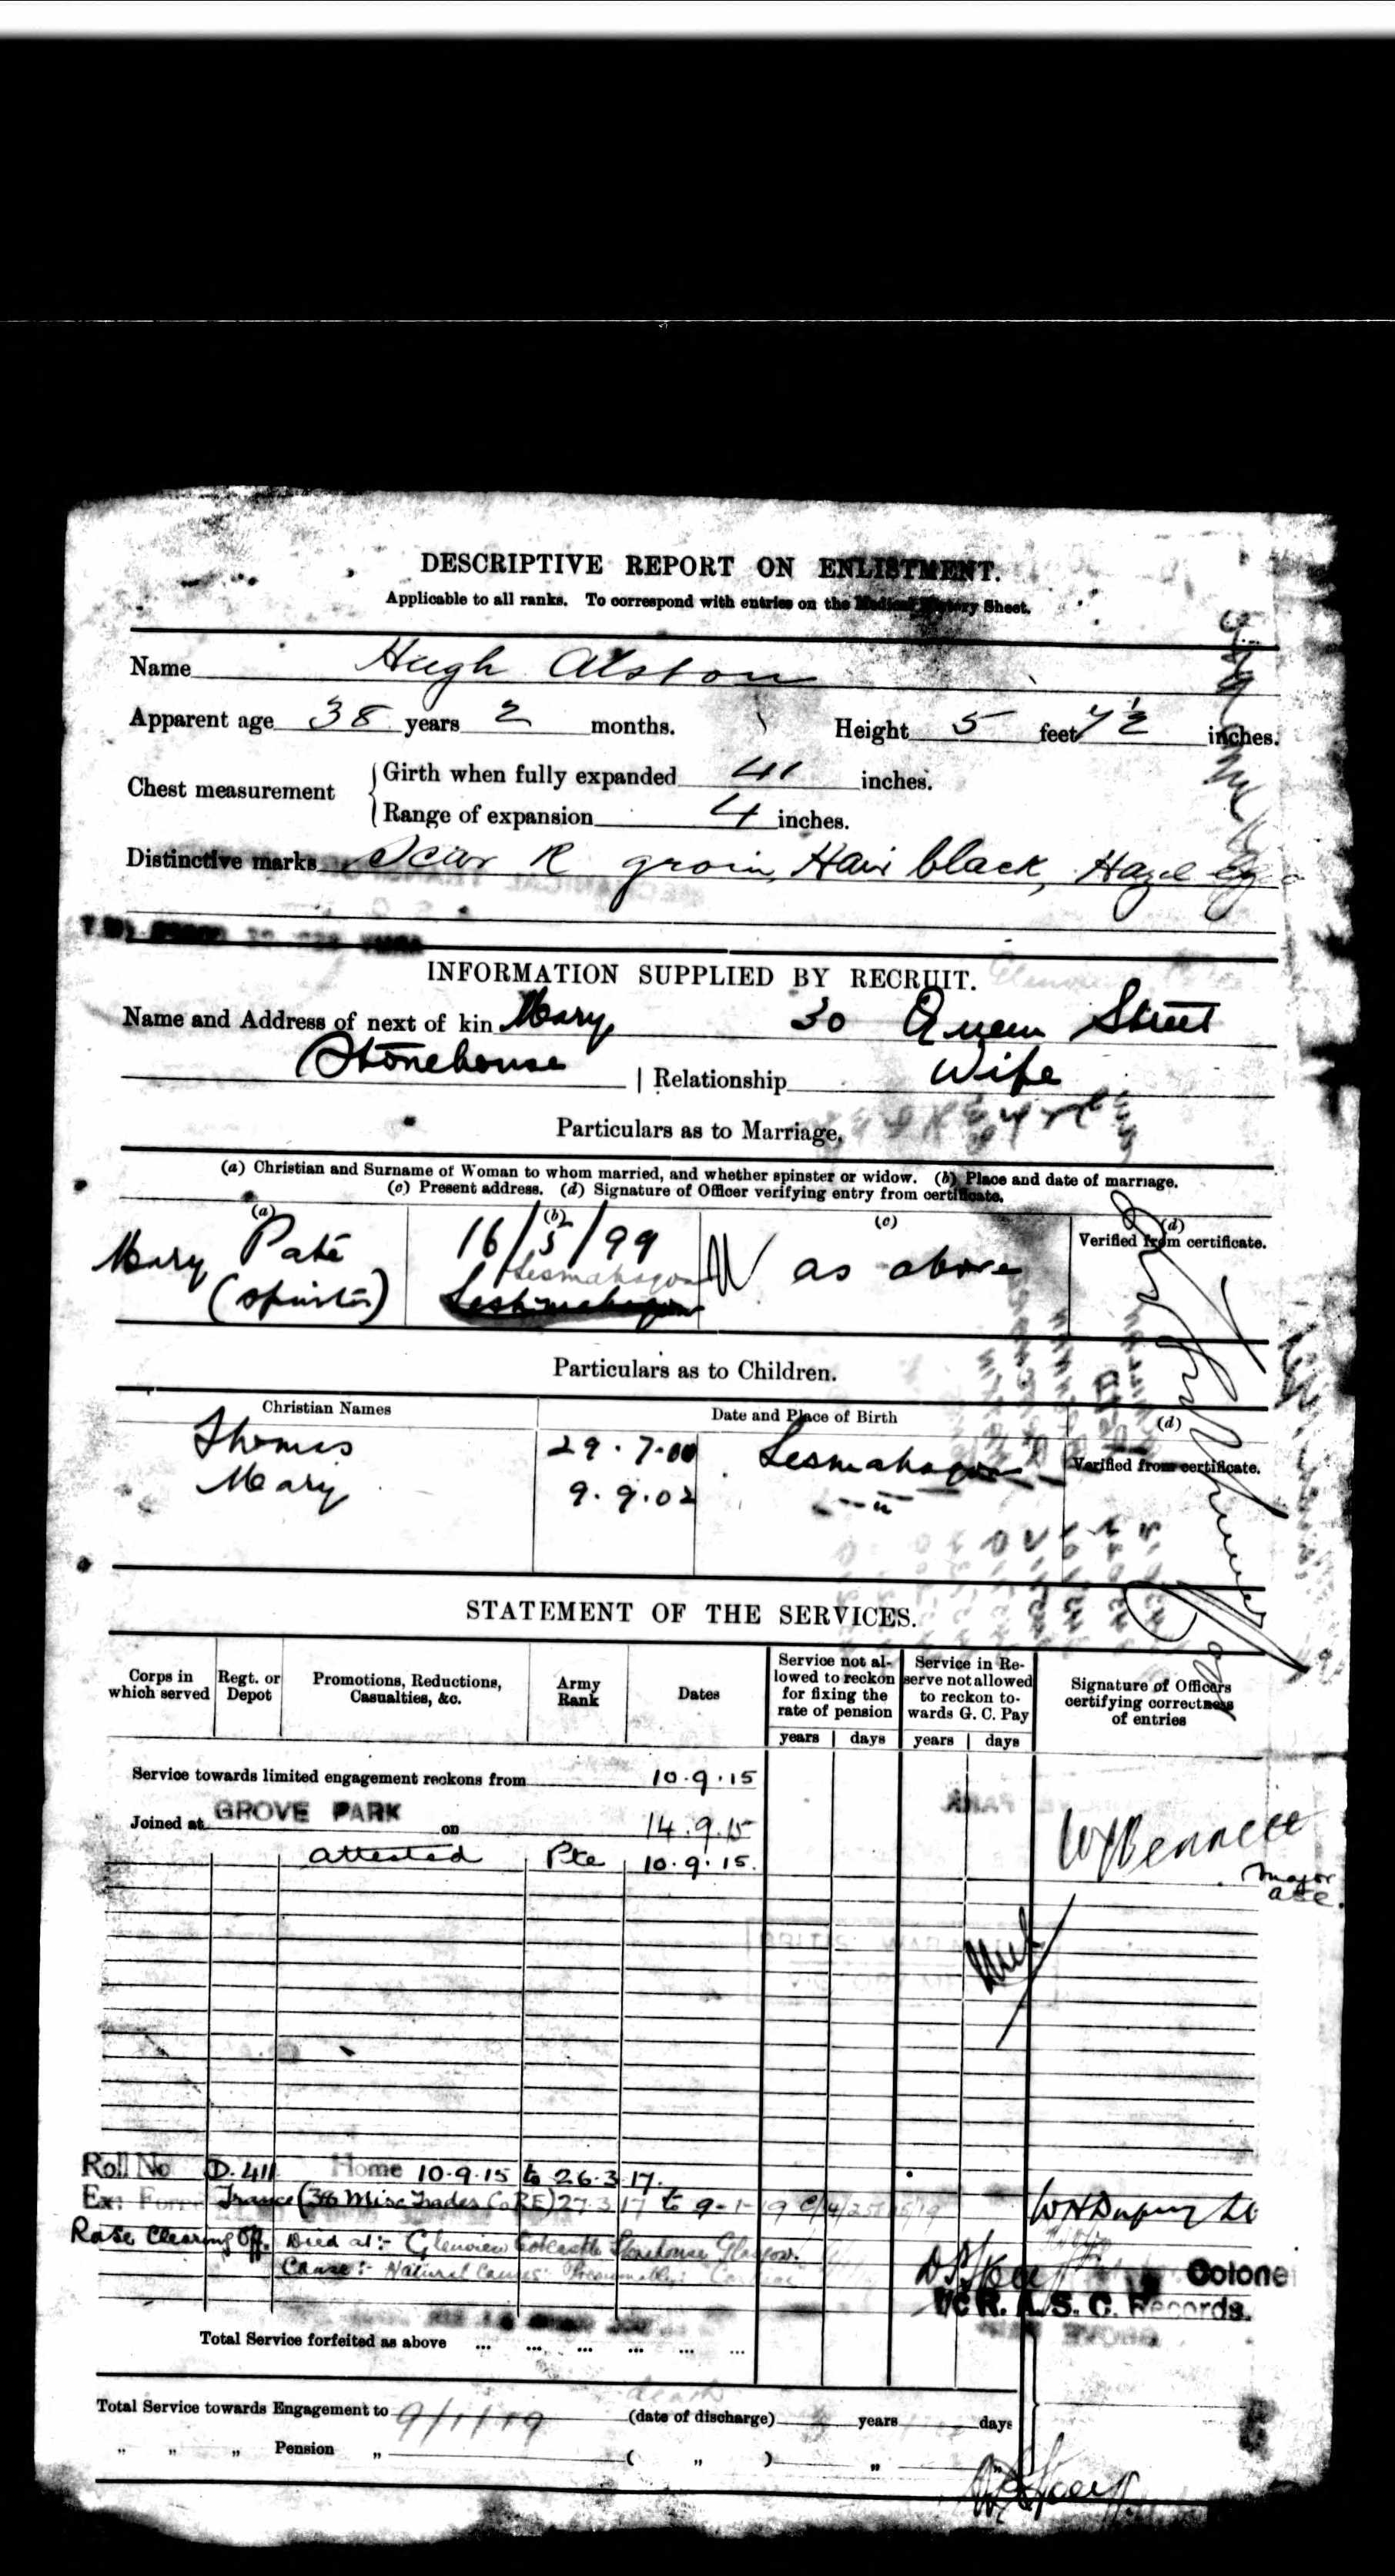 DESCRIPTIVE REPORT ON ENLISTMENT.
Applicable to all ranks. To correspond with entries on the Medical History Sheet.
Name Hugh Alston
Apparent age 38 years 2 months. Height 5 feet 7½ inches.
Chest measurement
Girth when fully expanded 41 inches.
Range of expansion 4 inches.
Distinctive marks Scar R groin, Hair black, Hazel eyes
INFORMATION SUPPLIED BY RECRUIT.
Name and Address of next of kin Mary 30 Queen Street
Stonehouse | Relationship Wife
Particulars as to Marriage.
(a) Christian and Surname of Woman to whom married, and whether spinster or widow. (b) Place and date of marriage.
(c) Present address. (d) Signature of Officer verifying entry from certificate.
(a) (b) (c) (d)
Verified from certificate.
Mary Pate 16/5/99 as above
(spinster) Lesmahagow
Particulars as to Children.
Christian Names Date and Place of Birth (d)
Verified from certificate.
Thomas 29.7.00 Lesmahagow
Mary 9.9.02 --"--
STATEMENT OF THE SERVICES.
Corps in which served Regt. or Depot Promotions, Reductions, Casualties, &c. Army Rank Dates Service not allowed to reckon for fixing the rate of pension Service in Reserve not allowed to reckon towards G. C. Pay Signature of Officers certifying correctness of entries
years days years days
Service towards limited engagement reckons from 10.9.15
Joined at GROVE PARK on 14.9.15
attested Pte 10.9.15.
W Bennett
Major
ASC.
Roll No D.411 Home 10.9.15 to 26.3.17.
Ex: Force France (38 Misc Trades Co RE) 27.3.17 to 9-1-19
Base Clearing Off. Died at:- Glenview Cotcastle Stonehouse Glasgow.
Cause:- Natural Causes Presumably: Cardiac
Colonel
I/c R.A.S.C. Records.
Total Service forfeited as above ... ... ... ... ... ...
death
Total Service towards Engagement to 9/1/19 (date of discharge) years days
" " " Pension " ( " ) " "